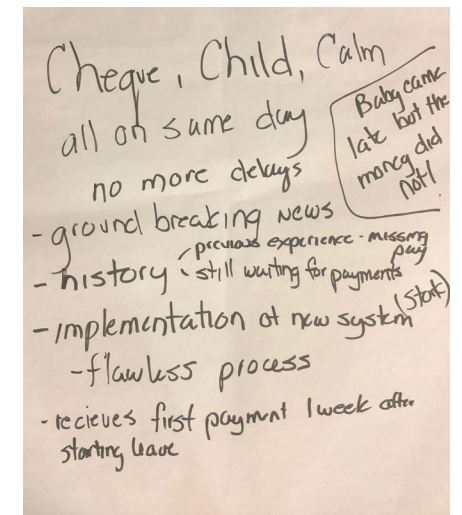 Cheque, Child, Calm
all on same day
no more delays
Baby came
late but the
money did
not!
- ground breaking news
- history
previous experience - missing
pay
still waiting for payments
- implementation of new system
(Stork)
- flawless process
- recieves first payment 1 week after
starting leave